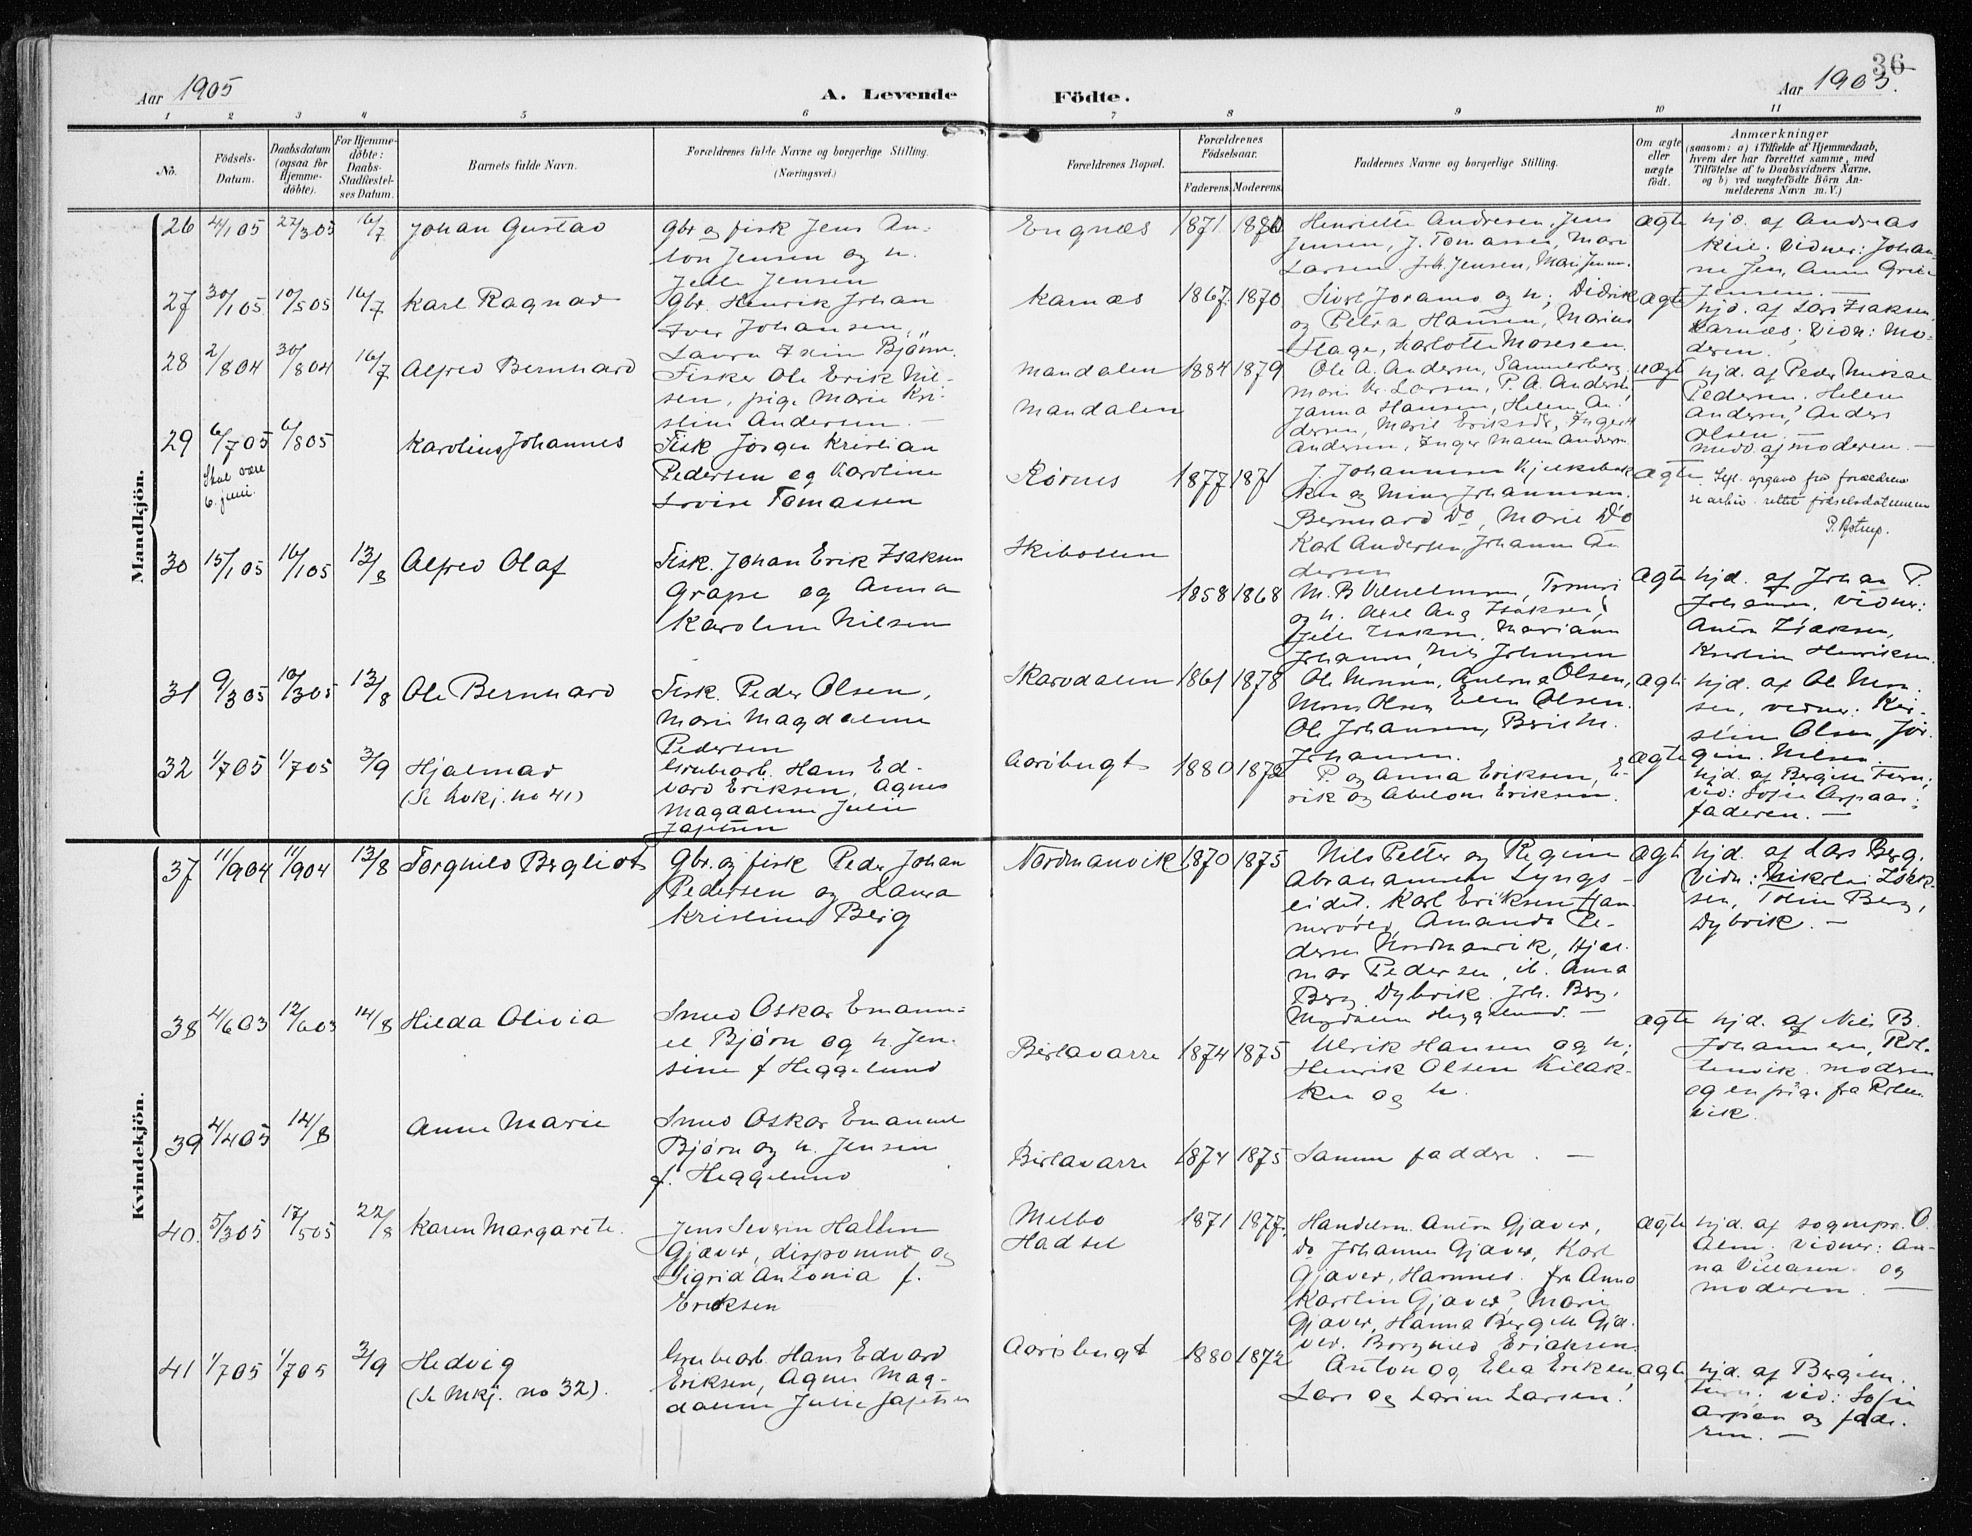 36
Aar 1905
A. Levende
Födte.
Aar 1905.
1 2 3 4 5 6 7 8 9 10 11
No.
Födsels-
Datum.
Daabsdatum
(ogsaa for
Hjemme-
döbte).
For Hjemme-
döbte:
Daabs-
Stadfæstel-
ses Datum.
Barnets fulde Navn.
Forældrenes fulde Navne og borgerlige Stilling.
(Næringsvei.)
Forældrenes Bopæl.
Forældrenes
Födselsaar.
Faderens. Moderens.
Faddernes Navne og borgerlige Stilling.
Om ægte
eller
uægte
födt.
Anmærkninger
(saasom: a) i Tilfælde af Hjemmedaab,
hvem der har forrettet samme, med
Tilföielse af to Daabsvidners Navne,
og b) ved uægtefödte Börn An-
melderens Navn m. V.)
Mandkjön.
26 4/1 05 22/3 05 16/7 Johan Gustav
Gbr og fisk Jens An-
ton Jensen og h.
Jensen
Engnæs 1871. 1880
Henriette Andresen, Jens
Jensen, J. Tomassen, Mari
Larsen Joh. Jensen,
ægte
hjd. af Andreas
vidner: Johan-
ne Jen,
Jensen. —
27 30/1 05 10/5 05 16/7 Karl Ragnar
Gbr. Henrik Johan
Iver Johansen,
Laura Bjønn.
Karnæs 1867. 1870
og h; Didrik
og Petra Hansen, Marius
Flage, Karlotte Mosesen
ægte
hjd. af Lars Isaksen
Karnæs; vidn: Mo-
deren.
28 2/8 04 30/8 04 16/7 Alfred Bernhard
Fisker Ole Erik Nil-
sen, pige Marie Kri-
stine Andersen. —
Mandalen
Mandalen
1884 1879
Ole A. Andersen, Sammerberg,
Larsen, P. A. Anders
Janna Hansen, Helene An-
dersen, Marit Eriksdr,
Andersen, Inger
uægt
hjd. af Peder Mikal
Pedersen. Helene
Andersen, Anders
Olsen.
medd. af moderen. —
29 6/7 05 6/8 05 Karolius Johannes
Skal være
6. juni.
Fisk Jørgen Kristian
Pedersen og Karoline
Lovise Tomassen
Rørnes 1877 1871
J. Johannesen
ken og Johannesen.
Bernhard Do, Marie Do
Karl Andersen Johanne An
dersen
ægte
opgave fra forældrene
rettet fødselsdatumen
P. Astrup.
30 15/1 05 16/1 05 13/8 Alfred Olaf
Fisk. Johan Erik Isaksen
Grape og Anna
Karoline Nilsen
Skibotten
1858 1868
og h. Axel Aug Isaksen,
Isaksen, Mariann
Johannes, Nils Johnsen
ægte
hjd. af Johan P.
Johansen, vidner:
Anton Isaksen,
Kristin Henriksen.
31 9/3 05 10/3 05 13/8 Ole Bernhard
Fisk. Peder Olsen,
Marie Magdalene
Pedersen
Skarvdalen 1861 1878
Ole Monsen, Antona Olsen,
Mons Olsen Elen Olsen.
Ole Johansen, Berit M.
Johansen.
ægte
hjd. af Ole Mon-
sen, vidner: Kir-
stine Olsen, Jør-
gine Nilsen.
32 1/7 05 1/7 05 3/9 Hjalmar
(Se kvkj. no 41)
Grubearb. Hans Ed-
vard Eriksen, Agnes
Magdalene Julie
Japetsen
Aarøbugt 1880 1872
P. og Anna Eriksen, E-
rik og Abelone Eriksen.
ægte
hjd. af Bergitte
vid: Sofie
faderen. —
Kvindekjön.
37 11/9 04 11/9 04 13/8 Torghild Bergliot
Gbr. og fisk Peder Johan
Pedersen og Laura
Kristine Berg
Nordmanvik 1870 1875
Nils Petter og Regine
Abrahamsen Lyngs-
eidet. Karl Eriksen Ham
merødet, Amanda Pe-
dersen Nordmanvik, Hjal-
mar Pedersen, ib. Anna
Berg Dybvik. Joh. Berg,
Magdalene Heggelund. —
ægte
hjd. af Lars Berg.
vidn: Nikolai Isak-
sen, Berg,
Dybvik. —
38 4/6 03 12/6 03 14/8 Hilda Olivia
Smed Oskar Emanu-
el Bjørn og h. Jen-
sine f Heggelund
Birtavarre 1874 1875
Ulrik Hansen og h;
Henrik Olsen Kilbak-
ken og h.
ægte
hjd. af Nils B.
Johannesen, Rot-
tenvik. moderen
og en pige fra
vik.
39 4/4 05 14/8 Anne Marie
Smed Oskar Emanuel
Bjørn og h. Jensine
f. Heggelund
Birtavarre 1874 1875 Samme faddere. —
40. 5/3 05 17/5 05 22/8 Karen Margarete.
Jens Severin Hallen
Gjæver, disponent og
Sigrid Antonia f.
Eriksen
Melbo
Hadsel
1871 1877.
Handelsm. Anton Gjæver,
do Johannes Gjæver, Karl
Gjæver, Havnnes. fru Anna
Karoline Gjæver, Marie
Gjæver, Hanna Bergitte Gjæ-
ver. Borghild Ericksen
ægte
hjd. af sognepr. O.
Alm; vidner: An-
na og
moderen. —
41 1/7 05 1/7 05 3/9 Hedvig
(Se Mkj. no 32).
Grubearb. Hans Edvard
Eriksen, Agnes Mag-
dalene Julie Japetsen
Aarøbugt 1880 1872
Anton og Elea Eriksen,
Lars og Larine Larsen.
ægte
hjd. af Bergitte
vid: Sofie
og fade-
ren. —